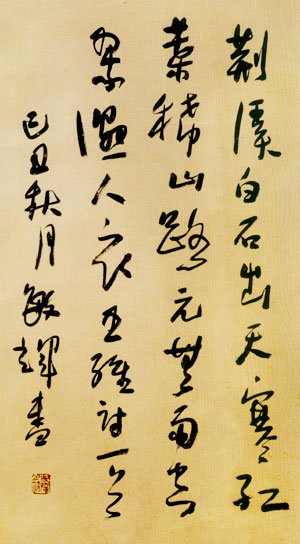 荆溪白石出天寒红
葉稀山路元無雨空
翠濕人衣王維诗一首
己丑秋月敏輝書